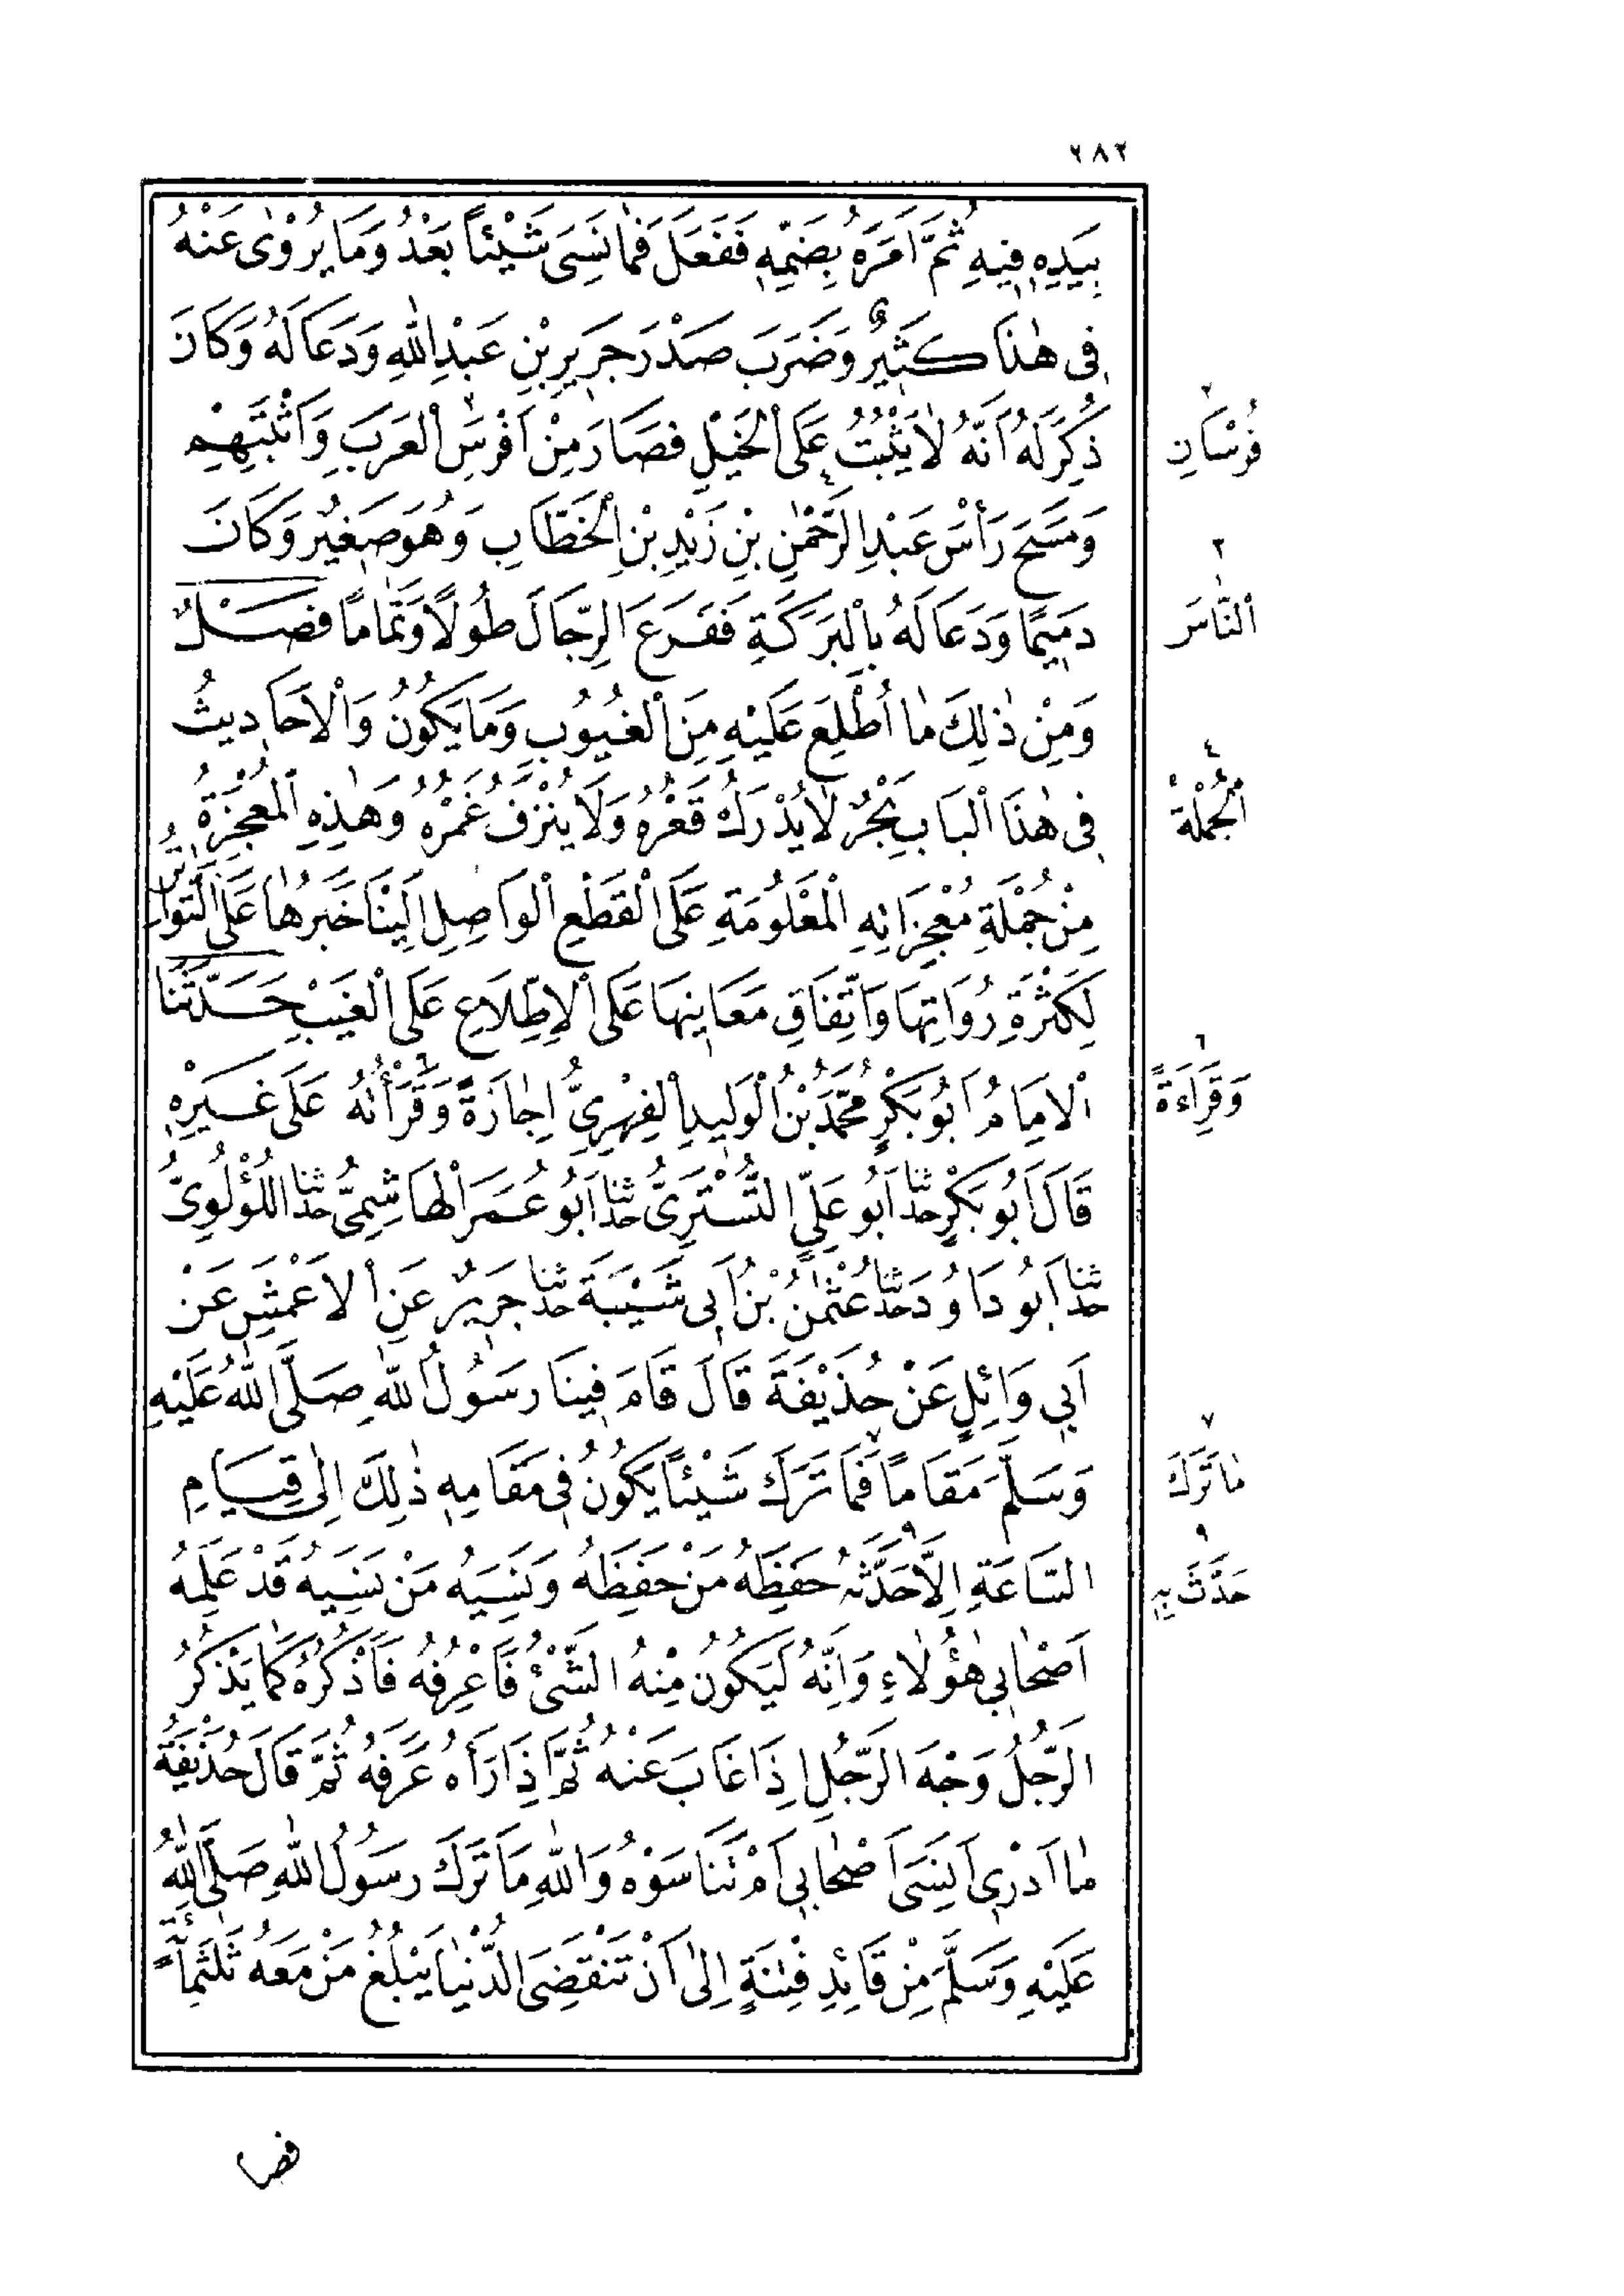 ٢٨٢
بِيَدِهِ فِيهِ ثُمَّ اَمَرَهُ بِضَمِّهِ فَفَعَلَ فَمَا نَسِىَ شَيْئًا بَعْدُ وَمَا يُرْوٰى عَنْهُ
فِى هٰذَا كَثِيرٌ وَضَرَبَ صَدْرَ جَرِيرِ بْنِ عَبْدِ اللّٰهِ وَدَعَا لَهُ وَكَانَ
ذُكِرَ لَهُ اَنَّهُ لَا يَثْبُتُ عَلَى الْخَيْلِ فَصَارَ مِنْ اَفْرَسِ الْعَرَبِ وَاَثْبَتِهِمْ
فُرْسَانِ
وَمَسَحَ رَأْسَ عَبْدِ الرَّحْمٰنِ بْنِ زَيْدِ بْنِ الْخَطَّابِ وَهُوَ صَغِيرٌ وَكَانَ
دَمِيمًا وَدَعَا لَهُ بِالْبَرَكَةِ فَفَرَعَ الرِّجَالَ طُولًا وَتَمَامًا فَصْلٌ
٢
اَلنَّاسَ
وَمِنْ ذٰلِكَ مَا اُطْلِعَ عَلَيْهِ مِنَ الْغُيُوبِ وَمَا يَكُونُ وَالْاَحَادِيثُ
فِى هٰذَا الْبَابِ بَحْرٌ لَا يُدْرَكُ قَعْرُهُ وَلَا يُنْزَفُ غَمْرُهُ وَهٰذِهِ الْمُعْجِزَةُ
٤
اَلْجُمْلَةُ
مِنْ جُمْلَةِ مُعْجِزَاتِهِ الْمَعْلُومَةِ عَلَى الْقَطْعِ الْوَاصِلِ اِلَيْنَا خَبَرُهَا عَلَى التَّوَاتُرِ
لِكَثْرَةِ رُوَاتِهَا وَاتِّفَاقِ مَعَانِيهَا عَلَى الْاِطِّلَاعِ عَلَى الْغَيْبِ حَدَّثَنَا
الْاِمَامُ اَبُو بَكْرٍ مُحَمَّدُ بْنُ الْوَلِيدِ الْفِهْرِىُّ اِجَازَةً وَقَرَأْتُهُ عَلَى غَيْرِهِ
٦
وَقِرَاءَةً
قَالَ اَبُو بَكْرٍ حدثنا اَبُو عَلِىٍّ التُّسْتَرِىُّ حدثنا اَبُو عُمَرَ الْهَاشِمِىُّ حدثنا اللُّؤْلُوِىُّ
حدثنا اَبُو دَاوُدَ حدثنا عُثْمٰنُ بْنُ اَبِى شَيْبَةَ حدثنا جَرِيرٌ عَنِ الْاَعْمَشِ عَنْ
اَبِى وَائِلٍ عَنْ حُذَيْفَةَ قَالَ قَامَ فِينَا رَسُولُ اللّٰهِ صَلَّى اللّٰهُ عَلَيْهِ
وَسَلَّمَ مَقَامًا فَمَا تَرَكَ شَيْئًا يَكُونُ فِى مَقَامِهِ ذٰلِكَ اِلٰى قِيَامِ
٧
مَا تَرَكَ
السَّاعَةِ اِلَّا حَدَّثَهُ حَفِظَهُ مَنْ حَفِظَهُ وَنَسِيَهُ مَنْ نَسِيَهُ قَدْ عَلِمَهُ
٩
حَدَّثَ بِهِ
اَصْحَابِى هٰؤُلَاءِ وَاِنَّهُ لَيَكُونُ مِنْهُ الشَّىْءُ فَاَعْرِفُهُ فَاَذْكُرُهُ كَمَا يَذْكُرُ
الرَّجُلُ وَجْهَ الرَّجُلِ اِذَا غَابَ عَنْهُ ثُمَّ اِذَا رَاٰهُ عَرَفَهُ ثُمَّ قَالَ حُذَيْفَةُ
مَا اَدْرِى اَنَسِىَ اَصْحَابِى اَمْ تَنَاسَوْهُ وَاللّٰهِ مَا تَرَكَ رَسُولُ اللّٰهِ صَلَّى اللّٰهُ
عَلَيْهِ وَسَلَّمَ مِنْ قَائِدِ فِتْنَةٍ اِلٰى اَنْ تَنْقَضِىَ الدُّنْيَا يَبْلُغُ مَنْ مَعَهُ ثَلٰثَمِائَةٍ